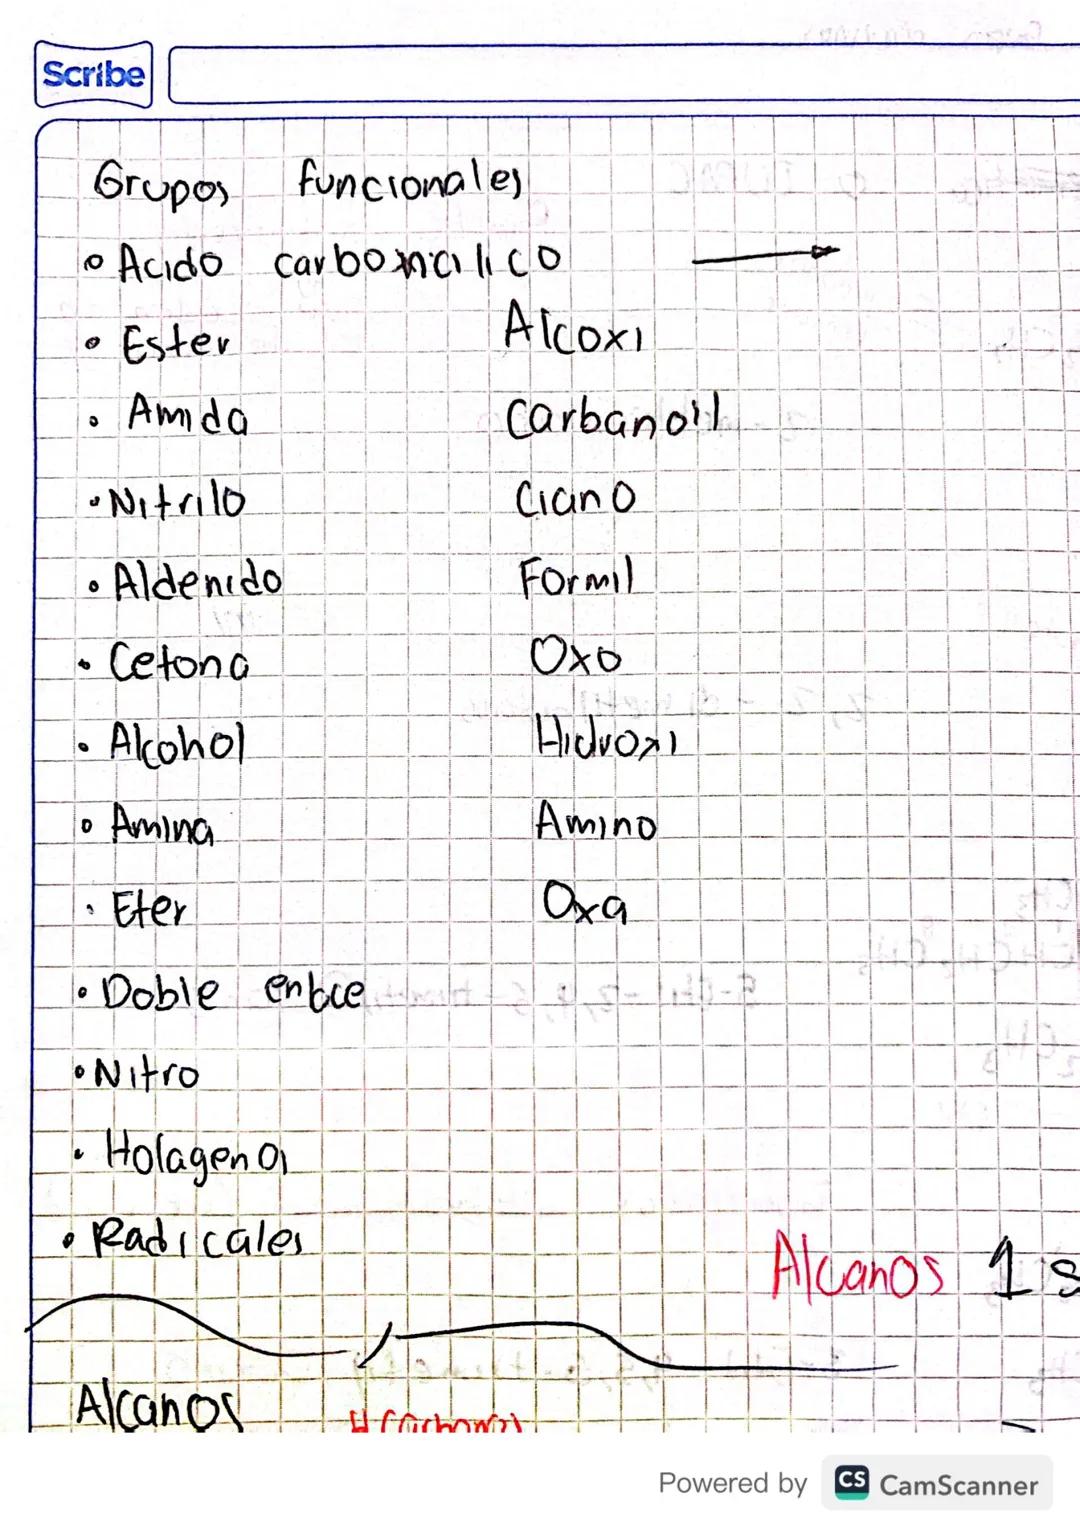 Scribe
Grupos funcionales
• Acido carboxcilico →
• Ester Alcoxi
• Amida Carbanoil
• Nitrilo Ciano
• Aldehido Formil
• Cetona Oxo
• Alcohol Hidroxi
• Amina Amino
• Eter Oxa
• Doble enlace
• Nitro
• Holageno
• Radicales
Alcanos 1 s
Alcanos
Powered by CS CamScanner